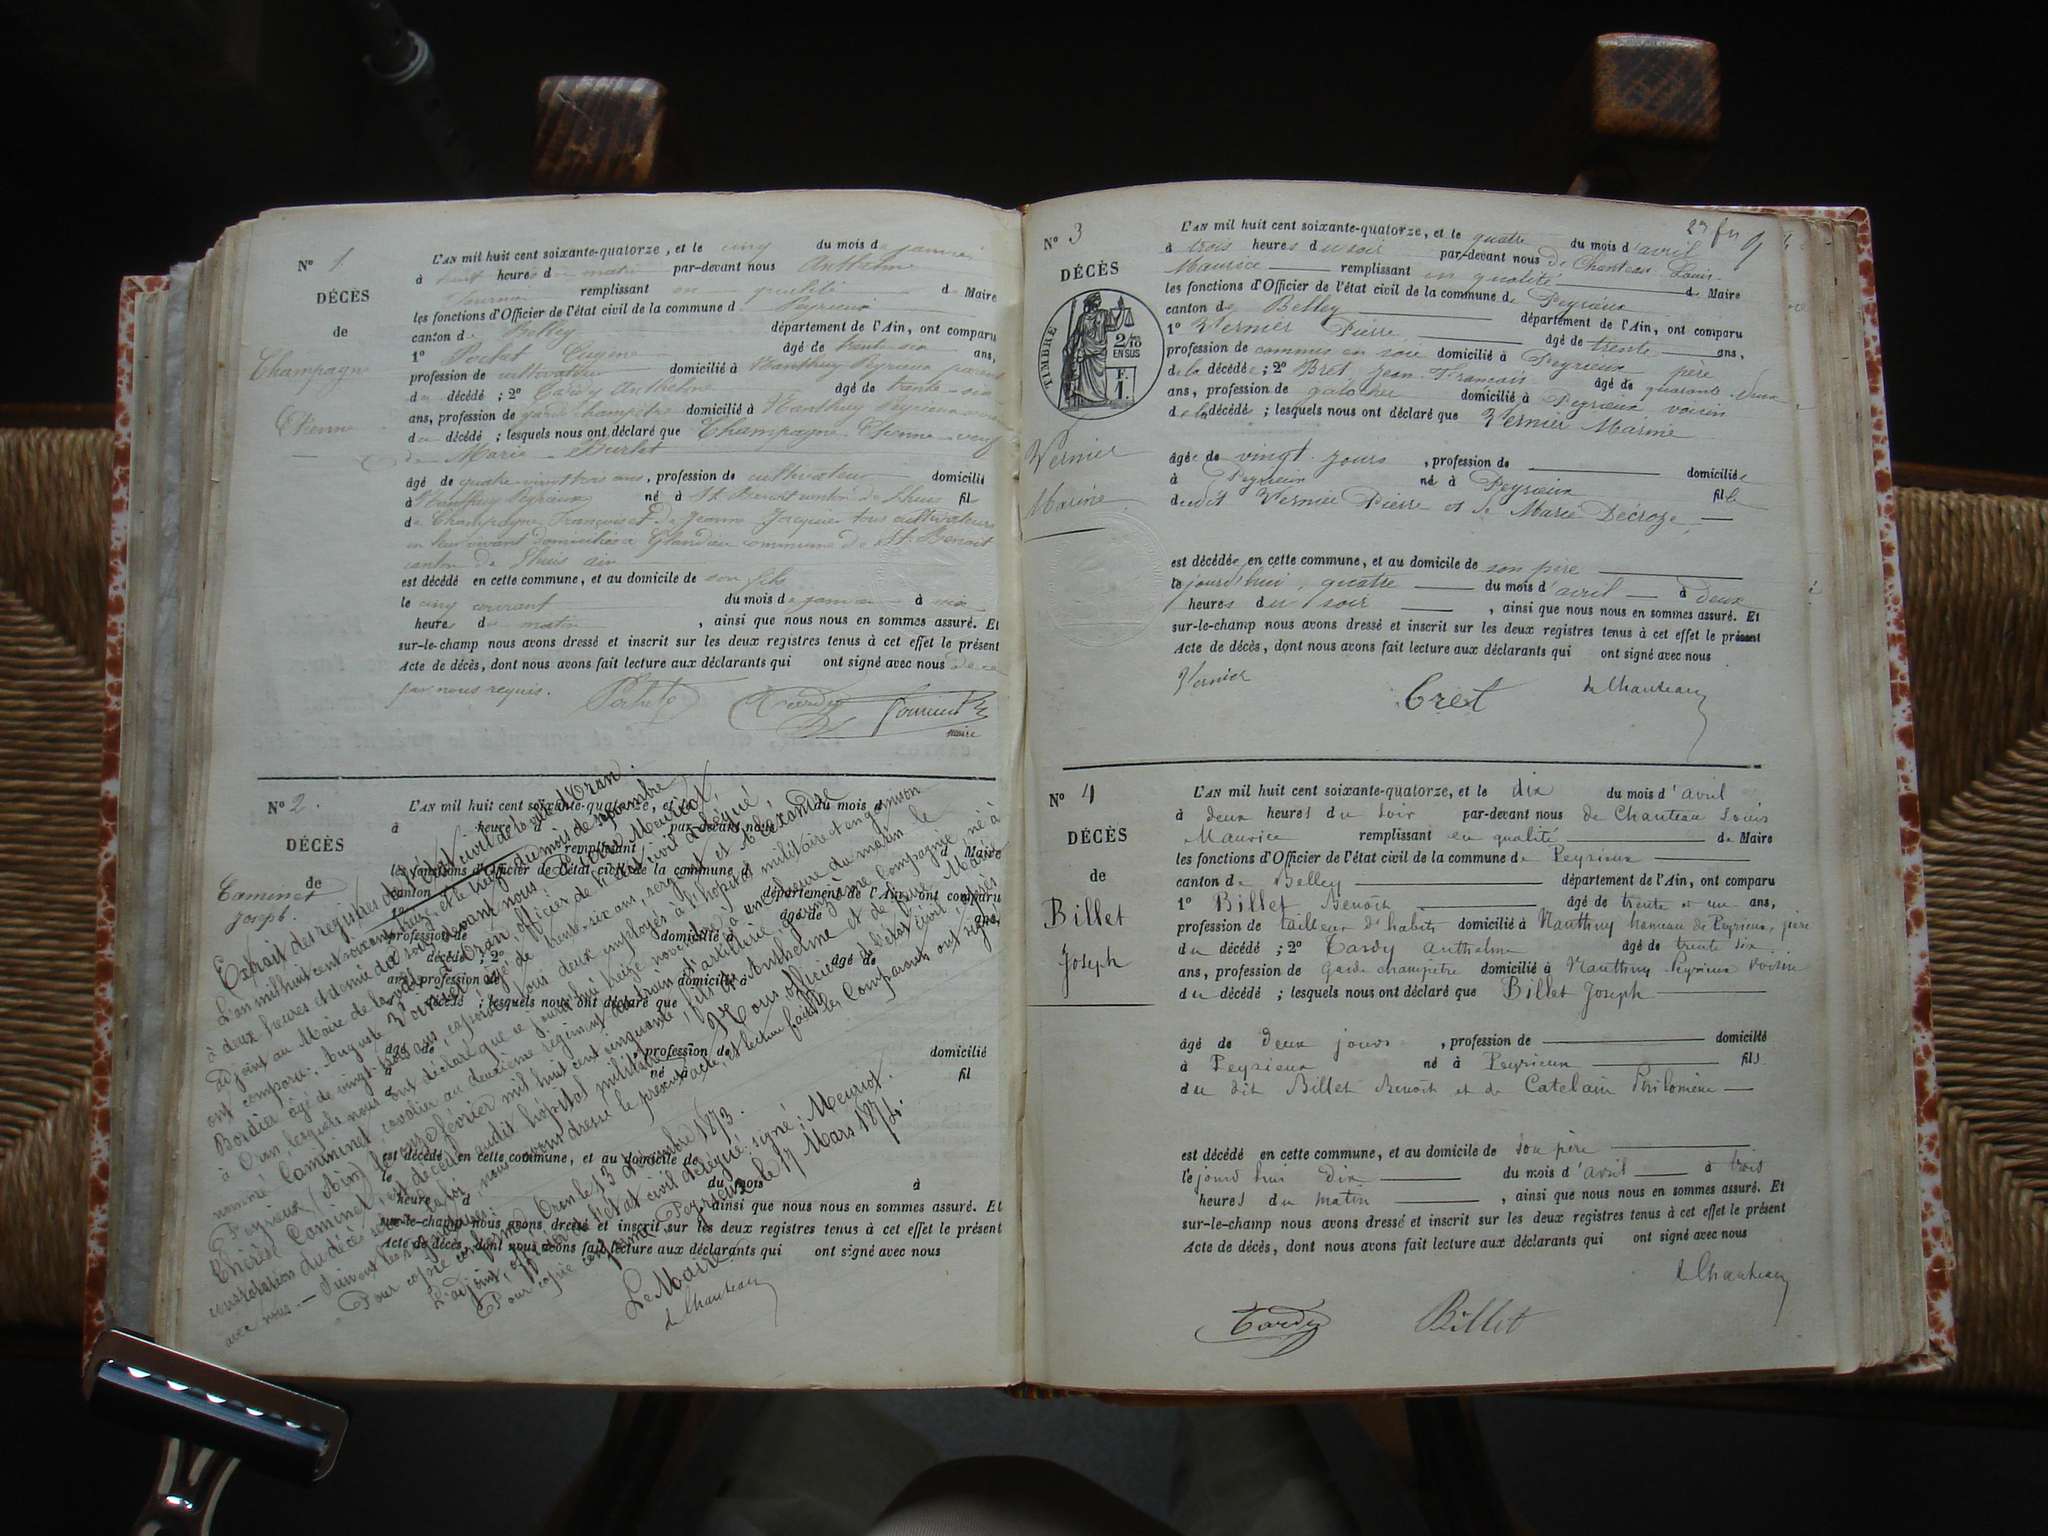 N° 1.
DÉCÈS
de
Champagne
Etienne
L'AN mil huit cent soixante-quatorze, et le cinq du mois de janvier
à huit heures du matin par-devant nous Anthelme
remplissant en qualité de Maire
les fonctions d'Officier de l'état civil de la commune de Peyrieux
canton de Belley département de l'Ain, ont comparu
1° Pochet Eugène âgé de trente six ans,
profession de cultivateur domicilié à Nanthuy Peyrieux parent
du décédé ; 2° Tardy Anthelme âgé de trente-six
ans, profession de garde champêtre domicilié à Nanthuy Peyrieux
du décédé ; lesquels nous ont déclaré que Champagne Etienne veuf
de Marie Burlet
âgé de quatre-vingt trois ans, profession de cultivateur domicilié
à Nanthuy Peyrieux né à St Benoit canton de Lhuis fils
de Champagne François et de Jeanne Jacquin tous cultivateurs
en leur vivant domiciliés à Glandieu commune de St Benoit
canton de Lhuis ain
est décédé en cette commune, et au domicile de son fils
le cinq courant du mois de janvier à six
heures du matin, ainsi que nous nous en sommes assuré. Et
sur-le-champ nous avons dressé et inscrit sur les deux registres tenus à cet effet le présent
Acte de décès, dont nous avons fait lecture aux déclarants qui ont signé avec nous de ce
par nous requis.
maire
N° 2.
DÉCÈS
de
Caminet
Joseph.
L'AN mil huit cent soixante-quatorze, et le du mois d
à heure d par-devant nous
remplissant d Maire
les fonctions d'Officier de l'état civil de la commune d
canton d département de l'Ain, ont comparu
1° âgé de ans,
profession de domicilié à
d décédé ; 2° âgé de
ans, profession de domicilié à
d décédé ; lesquels nous ont déclaré que
âgé de , profession de domicilié
à né à fil
est décédé en cette commune, et au domicile de
le du mois d à
heure d , ainsi que nous nous en sommes assuré. Et
sur-le-champ nous avons dressé et inscrit sur les deux registres tenus à cet effet le présent
Acte de décès, dont nous avons fait lecture aux déclarants qui ont signé avec nous
Extrait des registres de l'état civil de la ville d'Oran.
L'an mil huit cent soixante treize, et le treize du mois de septembre
à deux heures et demie du soir, devant nous Meuriot,
adjoint au Maire de la ville d'Oran, officier de l'état civil délégué
ont comparu: Auguste Voirnet, âgé de trente-six ans, sergent et Alexandre
Bordier âgé de vingt-trois ans, caporal, tous deux employés à l'hôpital militaire et en garnison
à Oran, lesquels nous ont déclaré que ce jourd'hui treize novembre à une heure du matin le
nommé Caminet, cavalier au deuxième régiment du train d'artillerie, quinzième Compagnie, né à
Peyrieux (Ain) le onze février mil huit cent cinquante, fils de Anthelme et de feue Marie
Thérèse Caminet, est décédé audit hôpital militaire. Nous officier de l'état civil, après
constatation du décès selon la loi, nous avons dressé le présent acte, et lecture faite, les Comparants ont signé
avec nous. — Suivent les signatures:
Pour copie conforme Oran le 13 9embre 1873.
L'adjoint, officier de l'état civil délégué signé: Meuriot.
Pour copie conforme Peyrieux, le 17 Mars 1874.
Le Maire
de Chanteau
N° 3
DÉCÈS
TIMBRE
2/10
EN SUS
F.
1.
Vernier
Marine
L'AN mil huit cent soixante-quatorze, et le quatre du mois d'avril
à trois heures du soir par-devant nous de Chanteau Louis
Maurice remplissant en qualité de Maire
les fonctions d'Officier de l'état civil de la commune de Peyrieux
canton de Belley département de l'Ain, ont comparu
1° Vernier Pierre âgé de trente ans,
profession de commis en soie domicilié à Peyrieux père
de la décédée ; 2° Bret Jean François âgé de quarante deux
ans, profession de galocher domicilié à Peyrieux voisin
de la décédé ; lesquels nous ont déclaré que Vernier Marine
âgée de vingt jours , profession de domiciliée
à Peyrieux né à Peyrieux fille
dudit Vernier Pierre et de Marie Décroze
est décédée en cette commune, et au domicile de son père
le jourd'hui quatre du mois d'avril à deux
heures du soir , ainsi que nous nous en sommes assuré. Et
sur-le-champ nous avons dressé et inscrit sur les deux registres tenus à cet effet le présent
Acte de décès, dont nous avons fait lecture aux déclarants qui ont signé avec nous
Vernier Bret de Chanteau
N° 4
DÉCÈS
de
Billet
Joseph
L'AN mil huit cent soixante-quatorze, et le dix du mois d'avril
à deux heures du soir par-devant nous de Chanteau Louis
Maurice remplissant en qualité de Maire
les fonctions d'Officier de l'état civil de la commune de Peyrieux
canton de Belley département de l'Ain, ont comparu
1° Billet Benoît âgé de trente et un ans,
profession de tailleur d'habits domicilié à Nanthuy hameau de Peyrieux, père
du décédé ; 2° Tardy Anthelme âgé de trente six
ans, profession de Garde champêtre domicilié à Nanthuy Peyrieux voisin
du décédé ; lesquels nous ont déclaré que Billet Joseph
âgé de deux jours , profession de domicilié
à Peyrieux né à Peyrieux fils
du dit Billet Benoît et de Catelain Philomène
est décédé en cette commune, et au domicile de son père
le jourd'hui dix du mois d'avril à trois
heures du matin , ainsi que nous nous en sommes assuré. Et
sur-le-champ nous avons dressé et inscrit sur les deux registres tenus à cet effet le présent
Acte de décès, dont nous avons fait lecture aux déclarants qui ont signé avec nous
de Chanteau
Tardy Billet